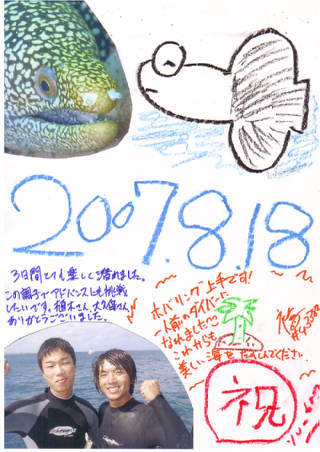 2007.8.18
3日間とても楽しく潜れました。
この調子でアドバンスにも挑戦
したいです。植木さん 大久保さん
ありがとうございました。
ホバリング上手です!
一人前のダイバーに
なれましたね
これからも
美しい海を楽しんでください
祝